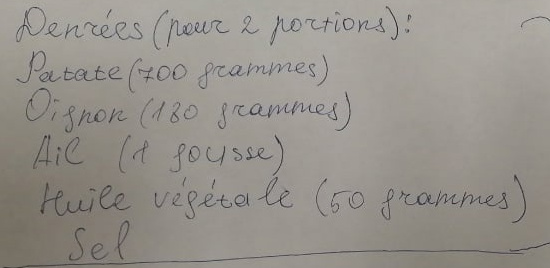 Denrées (pour 2 portions):
Patate (700 grammes)
Oignon (180 grammes)
Ail (1 gousse)
Huile végétale (50 grammes)
Sel